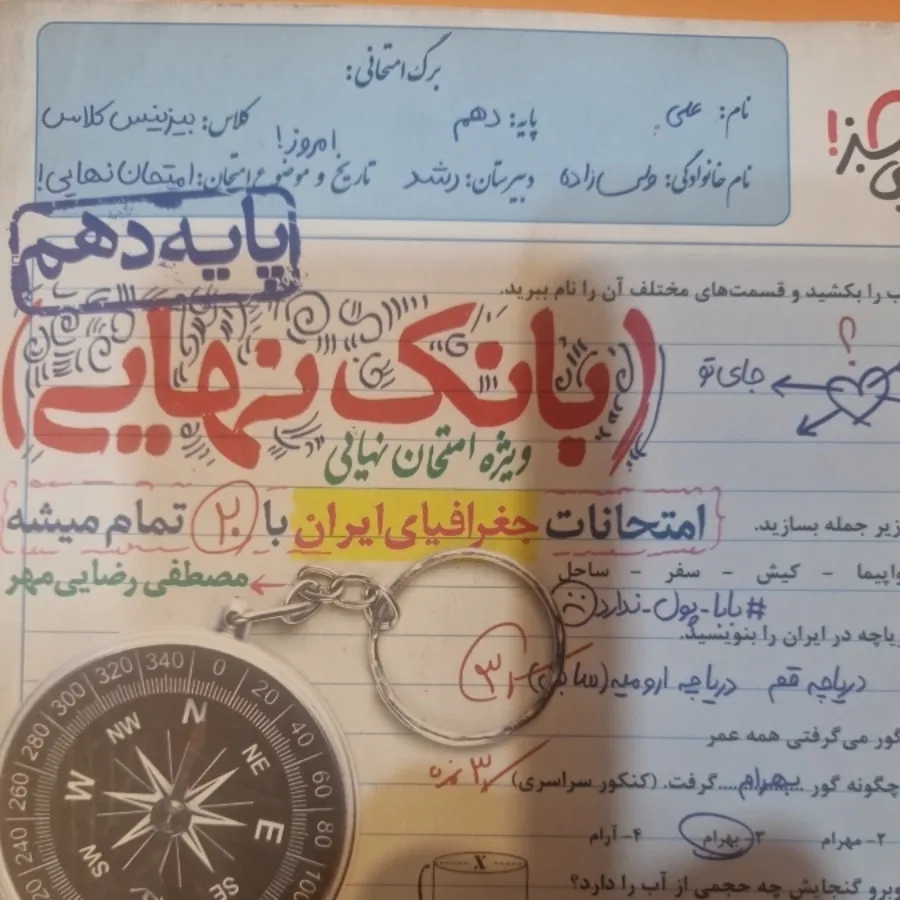 برگ امتحانی:
نام: علی
پایه: دهم
کلاس: بیزینس کلاس
نام خانوادگی: ولی‌زاده
دبیرستان: رشد
تاریخ و موضوع امتحان: امتحان نهایی!
امروز!
پایه دهم
را بکشید و قسمت‌های مختلف آن را نام ببرید.
(بانک نهایی)
؟
جای تو
ویژه امتحان نهایی
امتحانات جغرافیای ایران با ۲۰ تمام میشه
زیر جمله بسازید.
مصطفی رضایی‌مهر
– کیش – سفر – ساحل
#بابا_پول_ندارد
در ایران را بنویسید.
دریاچه قم دریاچه ارومیه
می‌گرفتی همه عمر
چگونه گور ...بهرام... گرفت. (کنکور سراسری)
۳ نمره
۲– مهرام ۳– بهرام ۴– آرام
گنجایش چه حجمی از آب را دارد؟
X
0 20 40 60 80 100
240 260 280 300 320 340
N NE E SE SW W NW